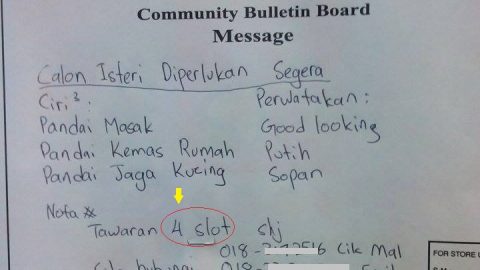 Community Bulletin Board
Message
Calon Isteri Diperlukan Segera
Ciri³ : Perwatakan :
Pandai Masak Good looking
Pandai Kemas Rumah Putih
Pandai Jaga Kucing Sopan
Nota **
Tawaran 4 slot shj
018- 2516 Cik Mal
018-
FOR STORE